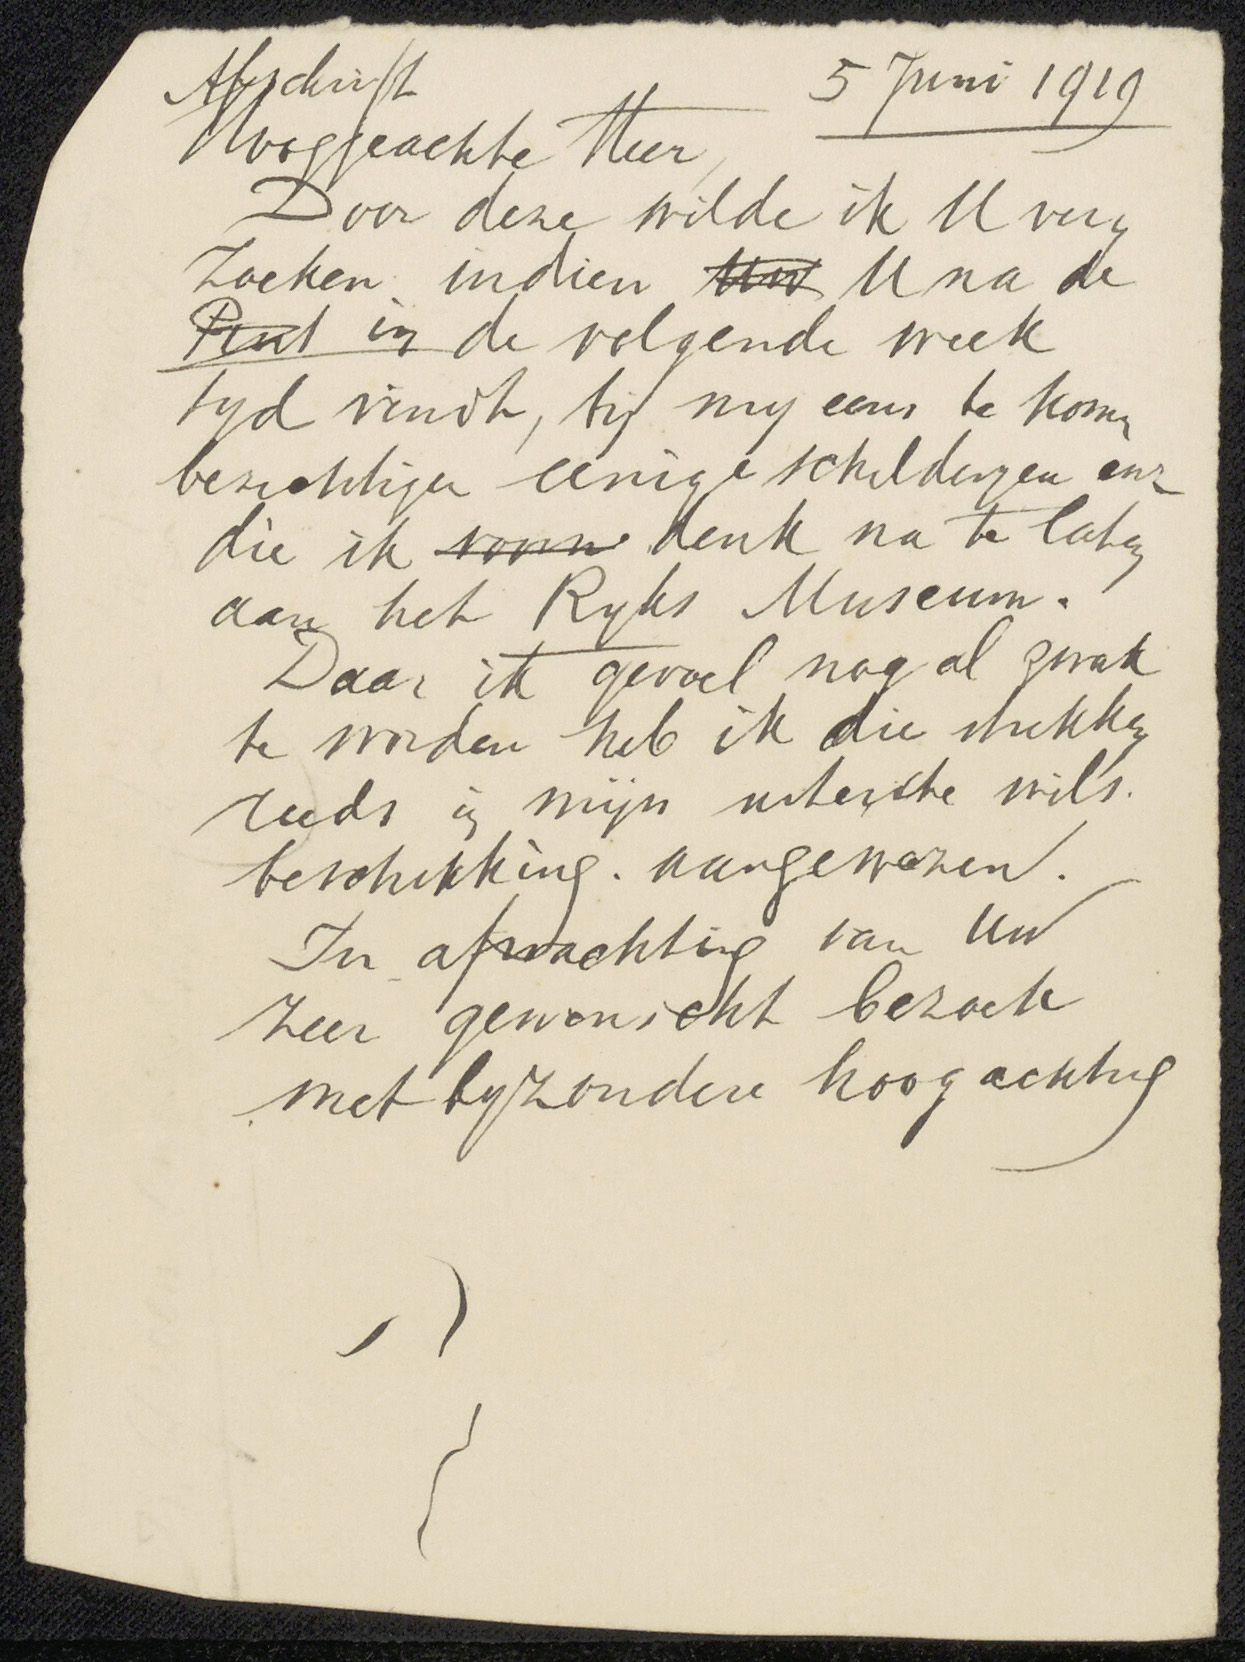 Afschrift 5 Juni 1919
Hooggeachte Heer,
Door deze wilde ik U ver
zoeken indien Uw U na de
Pink in de volgende week
tyd vindt, by my eens te komen
bezichtigen eenige schilderyen enz
die ik voorn denk na te laten
aan het Ryks Museum.
Daar ik gevoel nog al zwak
te worden heb ik die stukken
reeds in mijn uiterste wils.
beschikking. aangewezen.
In afwachting van Uw
zeer gewenscht bezoek
met byzondere hoogachting